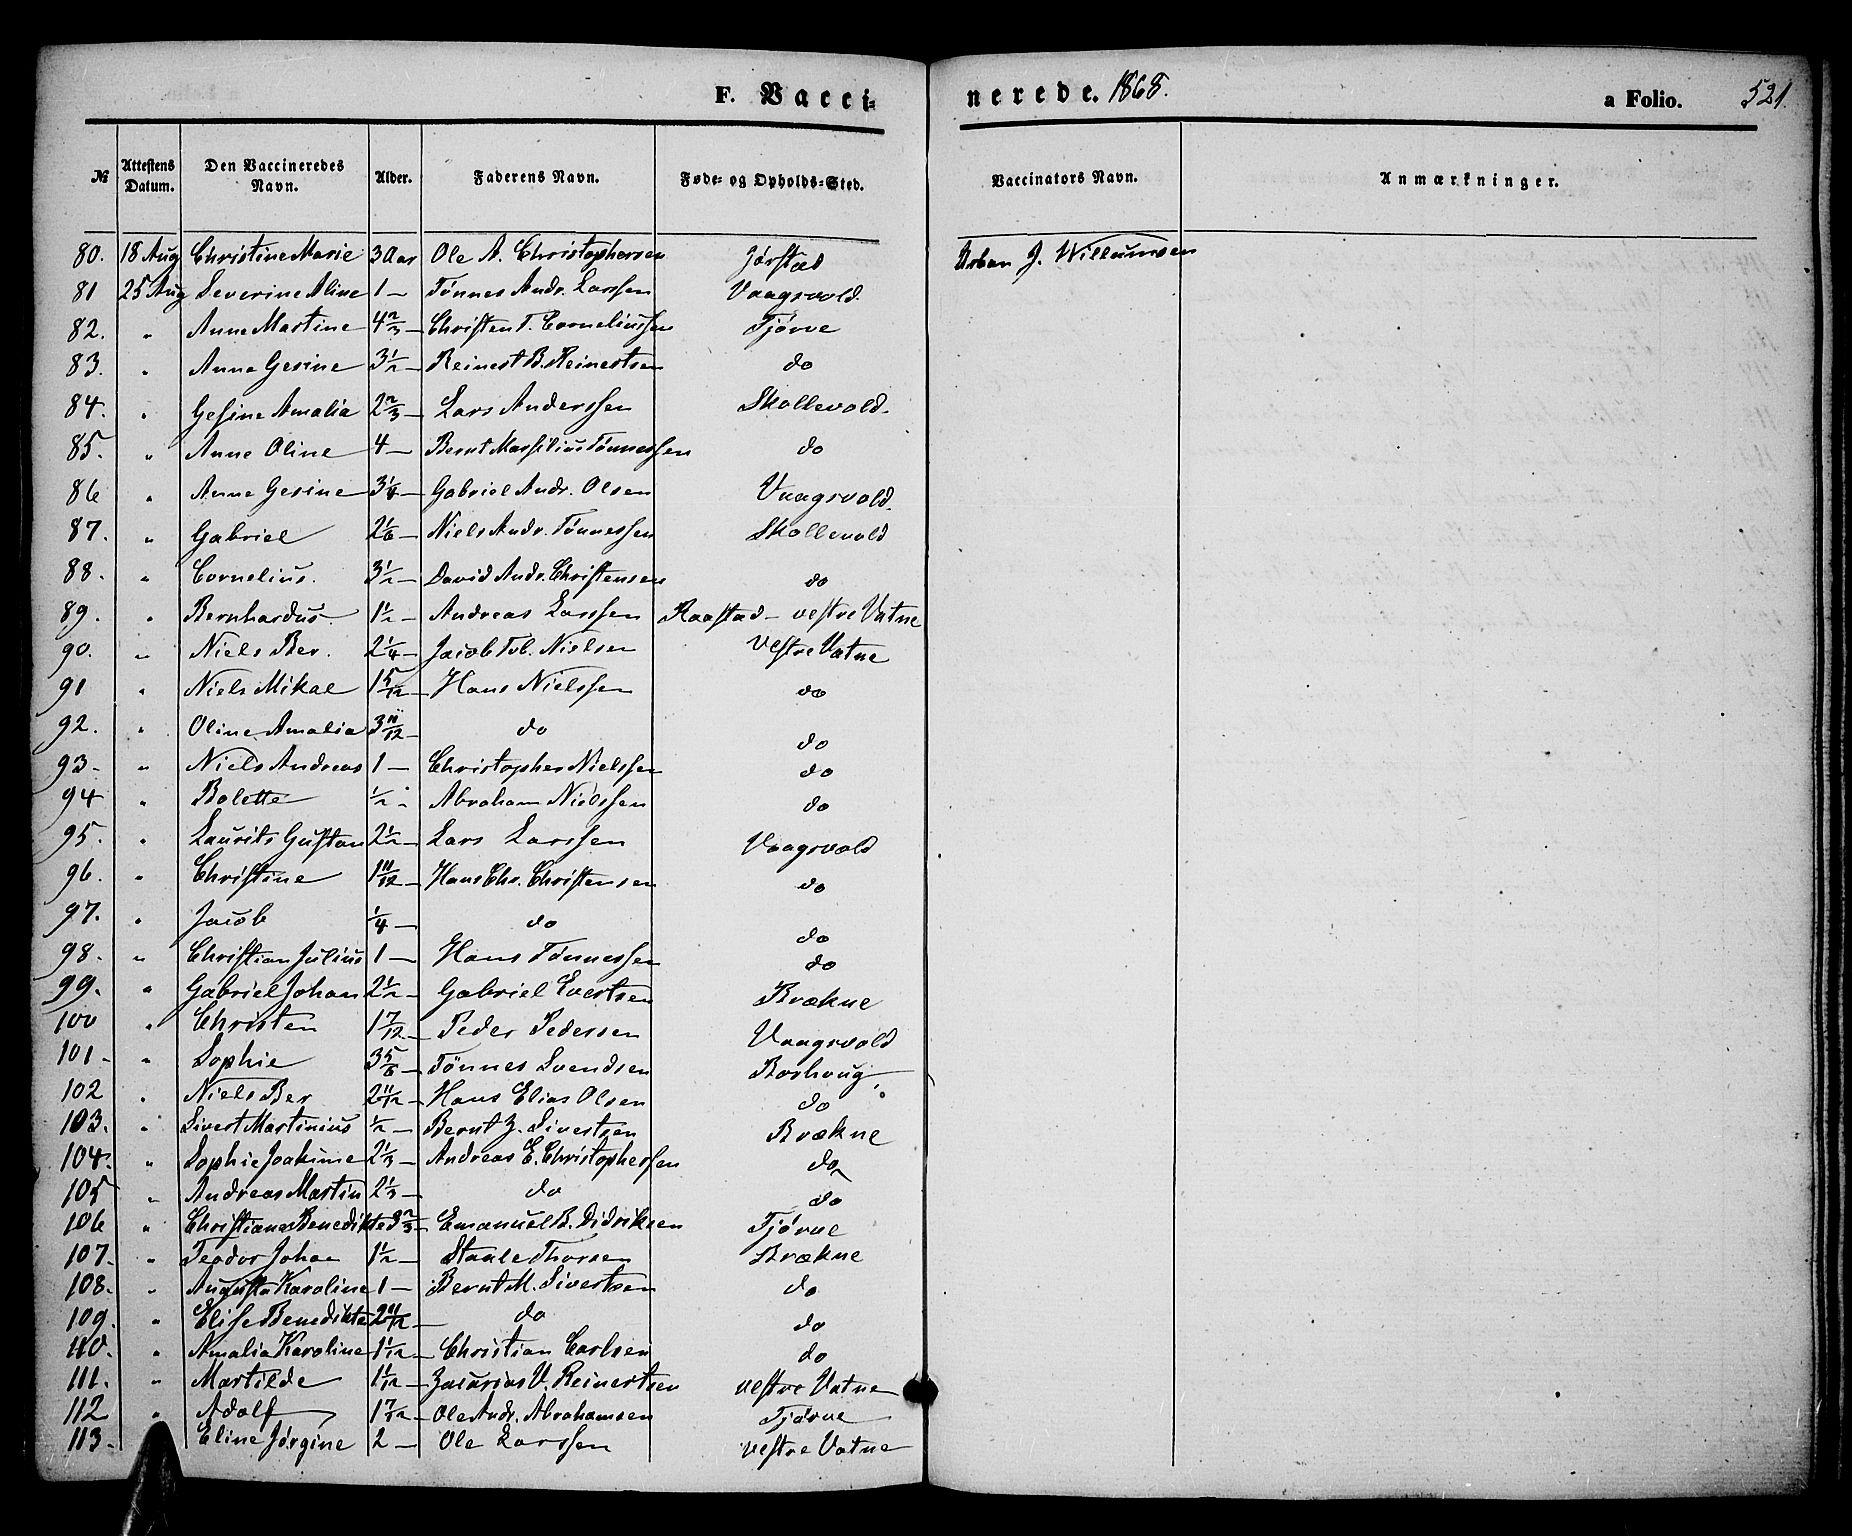 F. Vacci-
nerede. 1868.
a Folio. 521.
№ Attestens Datum. Den Vaccineredes Navn. Alder. Faderens Navn. Føde- og Opholds-Sted. Vaccinators Navn. Anmærkninger.
80. 18 Aug Christine Marie 3 Aar Ole A. Christophersen Jørstad J. Willumsen
81 25 Aug Severine Aline 1 — Tønnes Andr. Larssen Vaagsvold
82. " Anne Martine 4 2/3 — Christen T. Corneliussen Tjørve
83. " Anne Gesine 3 1/2 — Reinert B. Reinertsen do
84. " Gesine Amalia 2 2/3 — Lars Anderssen Skollevold.
85. " Anne Oline 4 — Bernt Marsilius Tønnessen do
86 " Anne Gesine 3 1/4 — Gabriel Andr. Olsen Vaagsvold.
87. " Gabriel 2 1/6 — Niels Andr. Tønnessen Skollevold
88. " Cornelius. 3 1/2 — David Andr. Christensen do
89. " Bernhardus 1 1/2 — Andreas Larssen Raastad - vestre Vatne
90. " Niels Ber. 2 1/4 — Jacob Tob. Nielsen Vestre Vatne
91 " Niels Mikal 1 5/12 — Hans Nielssen do
92. " Oline Amalia 3 11/12 — do do
93 - " Niels Andreas 1 — Christopher Nielssen do
94 " Bolette 1/2 - Abraham Nielssen do
95. " Laurits Gustav 2 1/2 — Lars Larssen Vaagsvold
96. " Christine 1 11/12 — Hans Chr. Christensen do
97. " Jacob 1/4 — do do
98. " Christian Julius 1 — Hans Tønnessen do
99. " Gabriel Johan 2 1/2 — Gabriel Evertsen Brækne
100 " Christen 1 7/12 — Peder Pedersen Vaagsvold
101 - " Sophie 3 5/6 — Tønnes Svendsen Boshoug
102 " Niels Ber 2 11/12 — Hans Elias Olsen do
103. " Sivert Martinius 1/2 — Bernt Z. Sivertsen Brækne
104. " Sophie Joakime 2 1/3 — Andreas E. Christophersen do
105 " Andreas Martin 2 1/3 — do do
106 " Christiane Benedikte 3 2/3 — Emanuel B. Didriksen Tjørve
107. " Teodor Johan 1 1/2 — Staale Thorsen Brækne
108. " Augusta Karoline 1 — Bernt M. Sivertsen do
109. " Elise Benedikte 2 11/12 — do do
110. " Amalia Karoline 1 1/12 — Christian Carlsen do
111. " Martilde 1 1/12 — Zacarias V. Reinertsen vestre Vatne
112 " Adolf 1 7/12 — Ole Andr. Abrahamsen Tjørve
113. Eline Jørgine 2 — Ole Larssen vestre Vatne